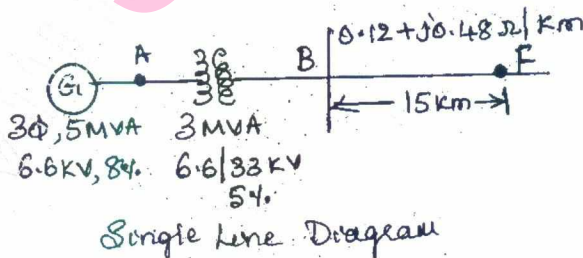 0.12+j0.48 Ω/Km
A
B
F
G1
15Km
3Φ, 5MVA
6.6KV, 8%
3MVA
6.6/33KV
5%
Single Line Diagram